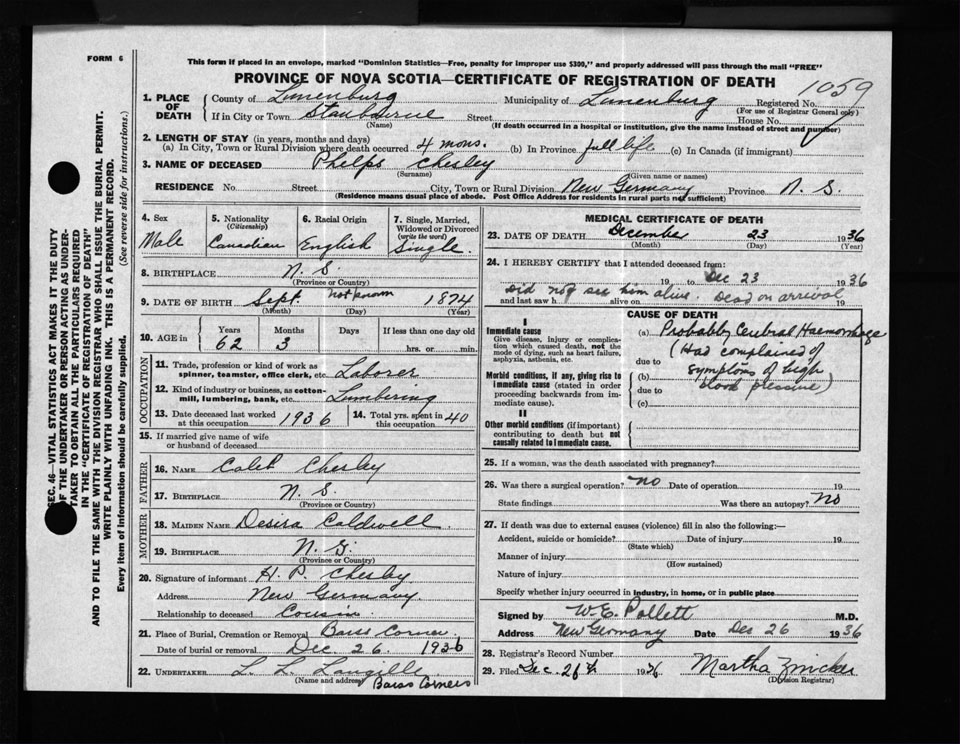 FORM 6
This form if placed in an envelope, marked "Dominion Statistics—Free, penalty for improper use $300," and properly addressed will pass through the mail "FREE"
PROVINCE OF NOVA SCOTIA—CERTIFICATE OF REGISTRATION OF DEATH
1059
1. PLACE OF DEATH { County of Lunenburg Municipality of Lunenburg Registered No.
(For use of Registrar General only)
If in City or Town Street House No.
(Name) (If death occurred in a hospital or institution, give the name instead of street and number)
2. LENGTH OF STAY (in years, months and days)
(a) In City, Town or Rural Division where death occurred 4 mons. (b) In Province full life (c) In Canada (if immigrant)
3. NAME OF DECEASED Phelps Chesley
(Surname) (Given name or names)
RESIDENCE No. Street City, Town or Rural Division New Germany Province N. S.
(Residence means usual place of abode. Post Office Address for residents in rural parts not sufficient)
SEC. 46—VITAL STATISTICS ACT MAKES IT THE DUTY
OF THE UNDERTAKER OR PERSON ACTING AS UNDER-
TAKER TO OBTAIN ALL THE PARTICULARS REQUIRED
IN THE "CERTIFICATE OF REGISTRATION OF DEATH"
AND TO FILE THE SAME WITH THE DIVISION REGISTRAR WHO SHALL ISSUE THE BURIAL PERMIT.
WRITE PLAINLY WITH UNFADING INK. THIS IS A PERMANENT RECORD.
Every item of information should be carefully supplied. (See reverse side for instructions.)
4. Sex 5. Nationality (Citizenship) 6. Racial Origin 7. Single, Married, Widowed or Divorced (write the word)
Male Canadian English Single
8. BIRTHPLACE N. S.
(Province or Country)
9. DATE OF BIRTH Sept. not known 1874
(Month) (Day) (Year)
10. AGE in { Years Months Days If less than one day old
62 3 hrs. or min.
OCCUPATION
11. Trade, profession or kind of work as
spinner, teamster, office clerk, etc. Laborer
12. Kind of industry or business, as cotton-
mill, lumbering, bank, etc. Lumbering
13. Date deceased last worked at this occupation 1936 14. Total yrs. spent in this occupation 40
15. If married give name of wife
or husband of deceased
FATHER
16. NAME Caleb Chesley
17. BIRTHPLACE N. S.
MOTHER
18. MAIDEN NAME Desira Caldwell
19. BIRTHPLACE N. S.
(Province or Country)
20. Signature of informant H. P. Chesley
Address New Germany
Relationship to deceased Cousin
21. Place of Burial, Cremation or Removal Barss Corner
Date of burial or removal Dec. 26. 1936
22. UNDERTAKER L. L. Langille
(Name and address) Barss Corners
MEDICAL CERTIFICATE OF DEATH
23. DATE OF DEATH December 23 1936
(Month) (Day) (Year)
24. I HEREBY CERTIFY that I attended deceased from:
19 to Dec 23 1936
Did not see him alive. Dead on arrival
and last saw h alive on 19
CAUSE OF DEATH
I
Immediate cause
Give disease, injury or complica-
tion which caused death, not the
mode of dying, such as heart failure,
asphyxia, asthenia, etc.
(a) Probably Cerebral Haemorrhage
(Had complained of
due to
Morbid conditions, if any, giving rise to
immediate cause (stated in order
proceeding backwards from im-
mediate cause).
(b) symptoms of high
due to blood pressure)
(c)
II
Other morbid conditions (if important)
contributing to death but not
causally related to immediate cause.
25. If a woman, was the death associated with pregnancy?
26. Was there a surgical operation? no Date of operation 19
State findings Was there an autopsy? No
27. If death was due to external causes (violence) fill in also the following:—
Accident, suicide or homicide? Date of injury 19
(State which)
Manner of injury
(How sustained)
Nature of injury
Specify whether injury occurred in industry, in home, or in public place
Signed by W. E. Pollett M.D.
Address New Germany Date Dec 26 1936
28. Registrar's Record Number
29. Filed Dec. 26th 1936 Martha Zwicker
(Division Registrar)